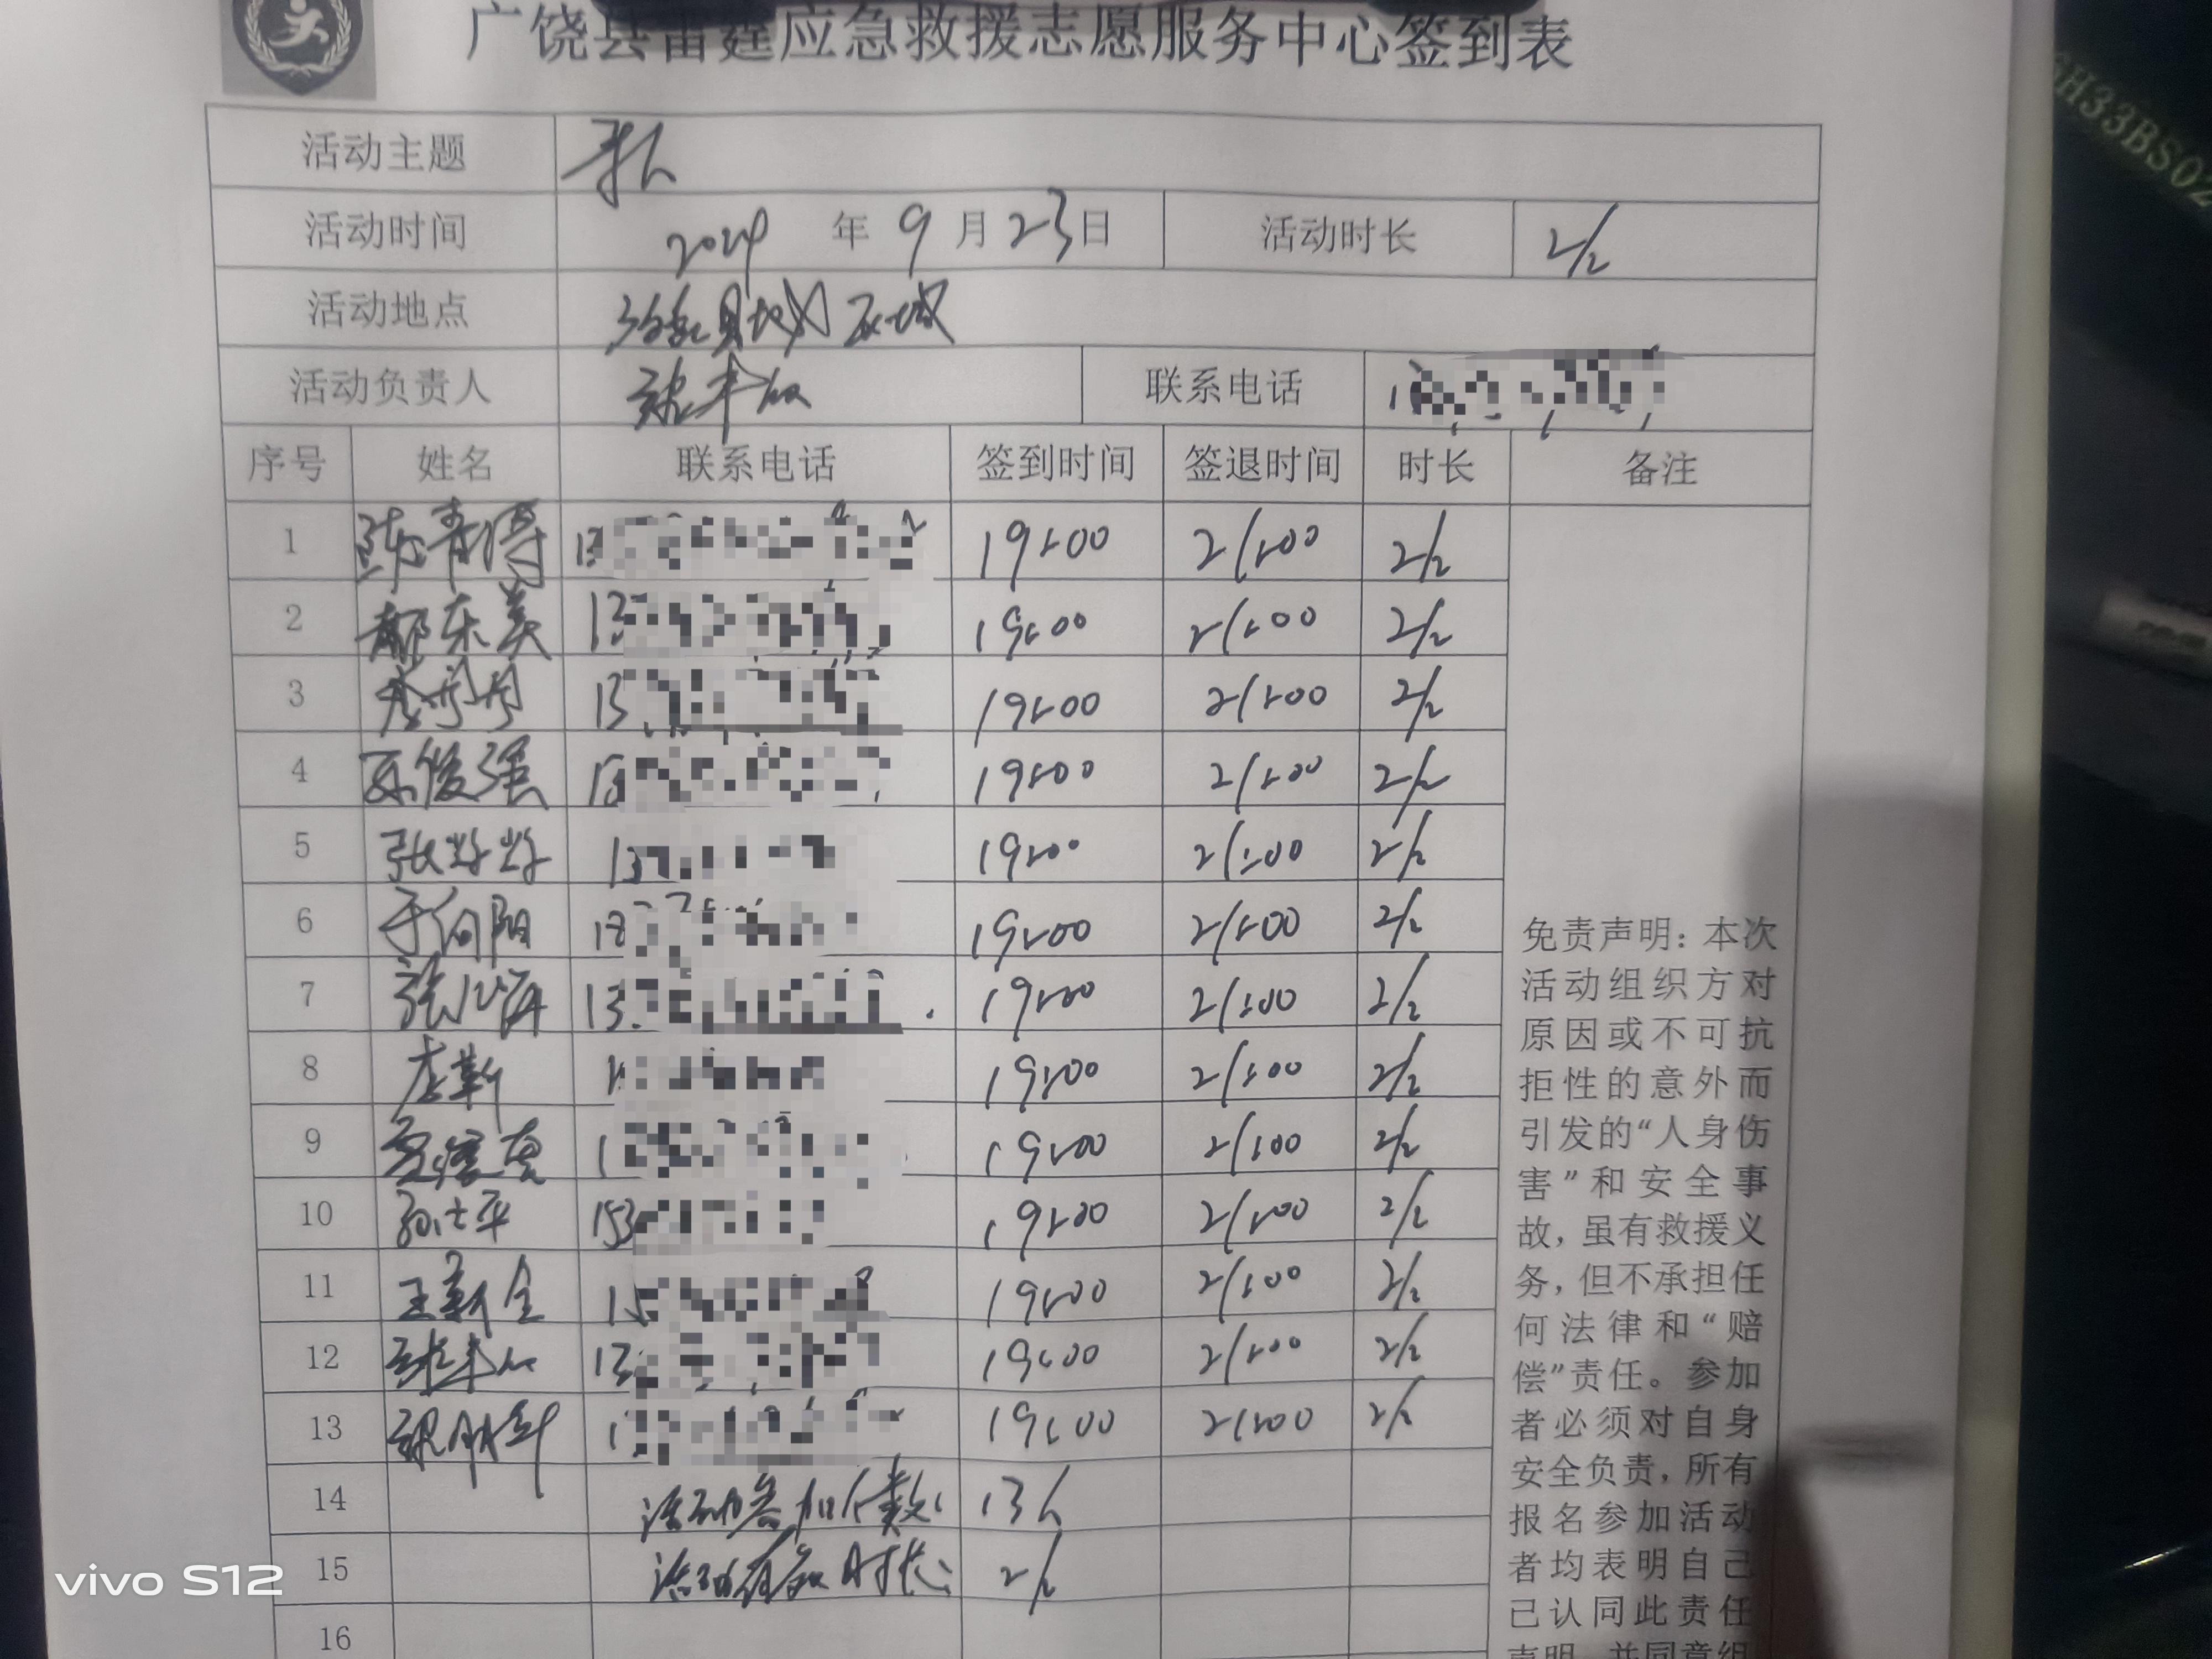 广饶县雷霆应急救援志愿服务中心签到表
活动主题 寻人
活动时间 2024 年 9 月 23 日 活动时长 2/2
活动地点 区域
活动负责人 联系电话 1
序号 姓名 联系电话 签到时间 签退时间 时长 备注
1 陈青海 13 19:00 21:00 2/2
2 郝东美 13 19:00 21:00 2/2
3 李丹丹 13 19:00 21:00 2/2
4 孙俊强 19:00 21:00 2/2
5 张 13 19:00 21:00 2/2
6 于向阳 18 19:00 21:00 2/2
7 张 13 19:00 21:00 2/2
8 李新 1 19:00 21:00 2/2
9 1 19:00 21:00 2/2
10 孙士平 153 19:00 21:00 2/2
11 王新全 15 19:00 21:00 2/2
12 13 19:00 21:00 2/2
13 1 19:00 21:00 2/2
14 活动参加人数: 13人
15 活动有效时长: 2/2
16
免责声明：本次
活动组织方对
原因或不可抗
拒性的意外而
引发的“人身伤
害”和安全事
故，虽有救援义
务，但不承担任
何法律和“赔
偿”责任。参加
者必须对自身
安全负责，所有
报名参加活动
者均表明自己
已认同此责任
声明，并同意组
vivo S12